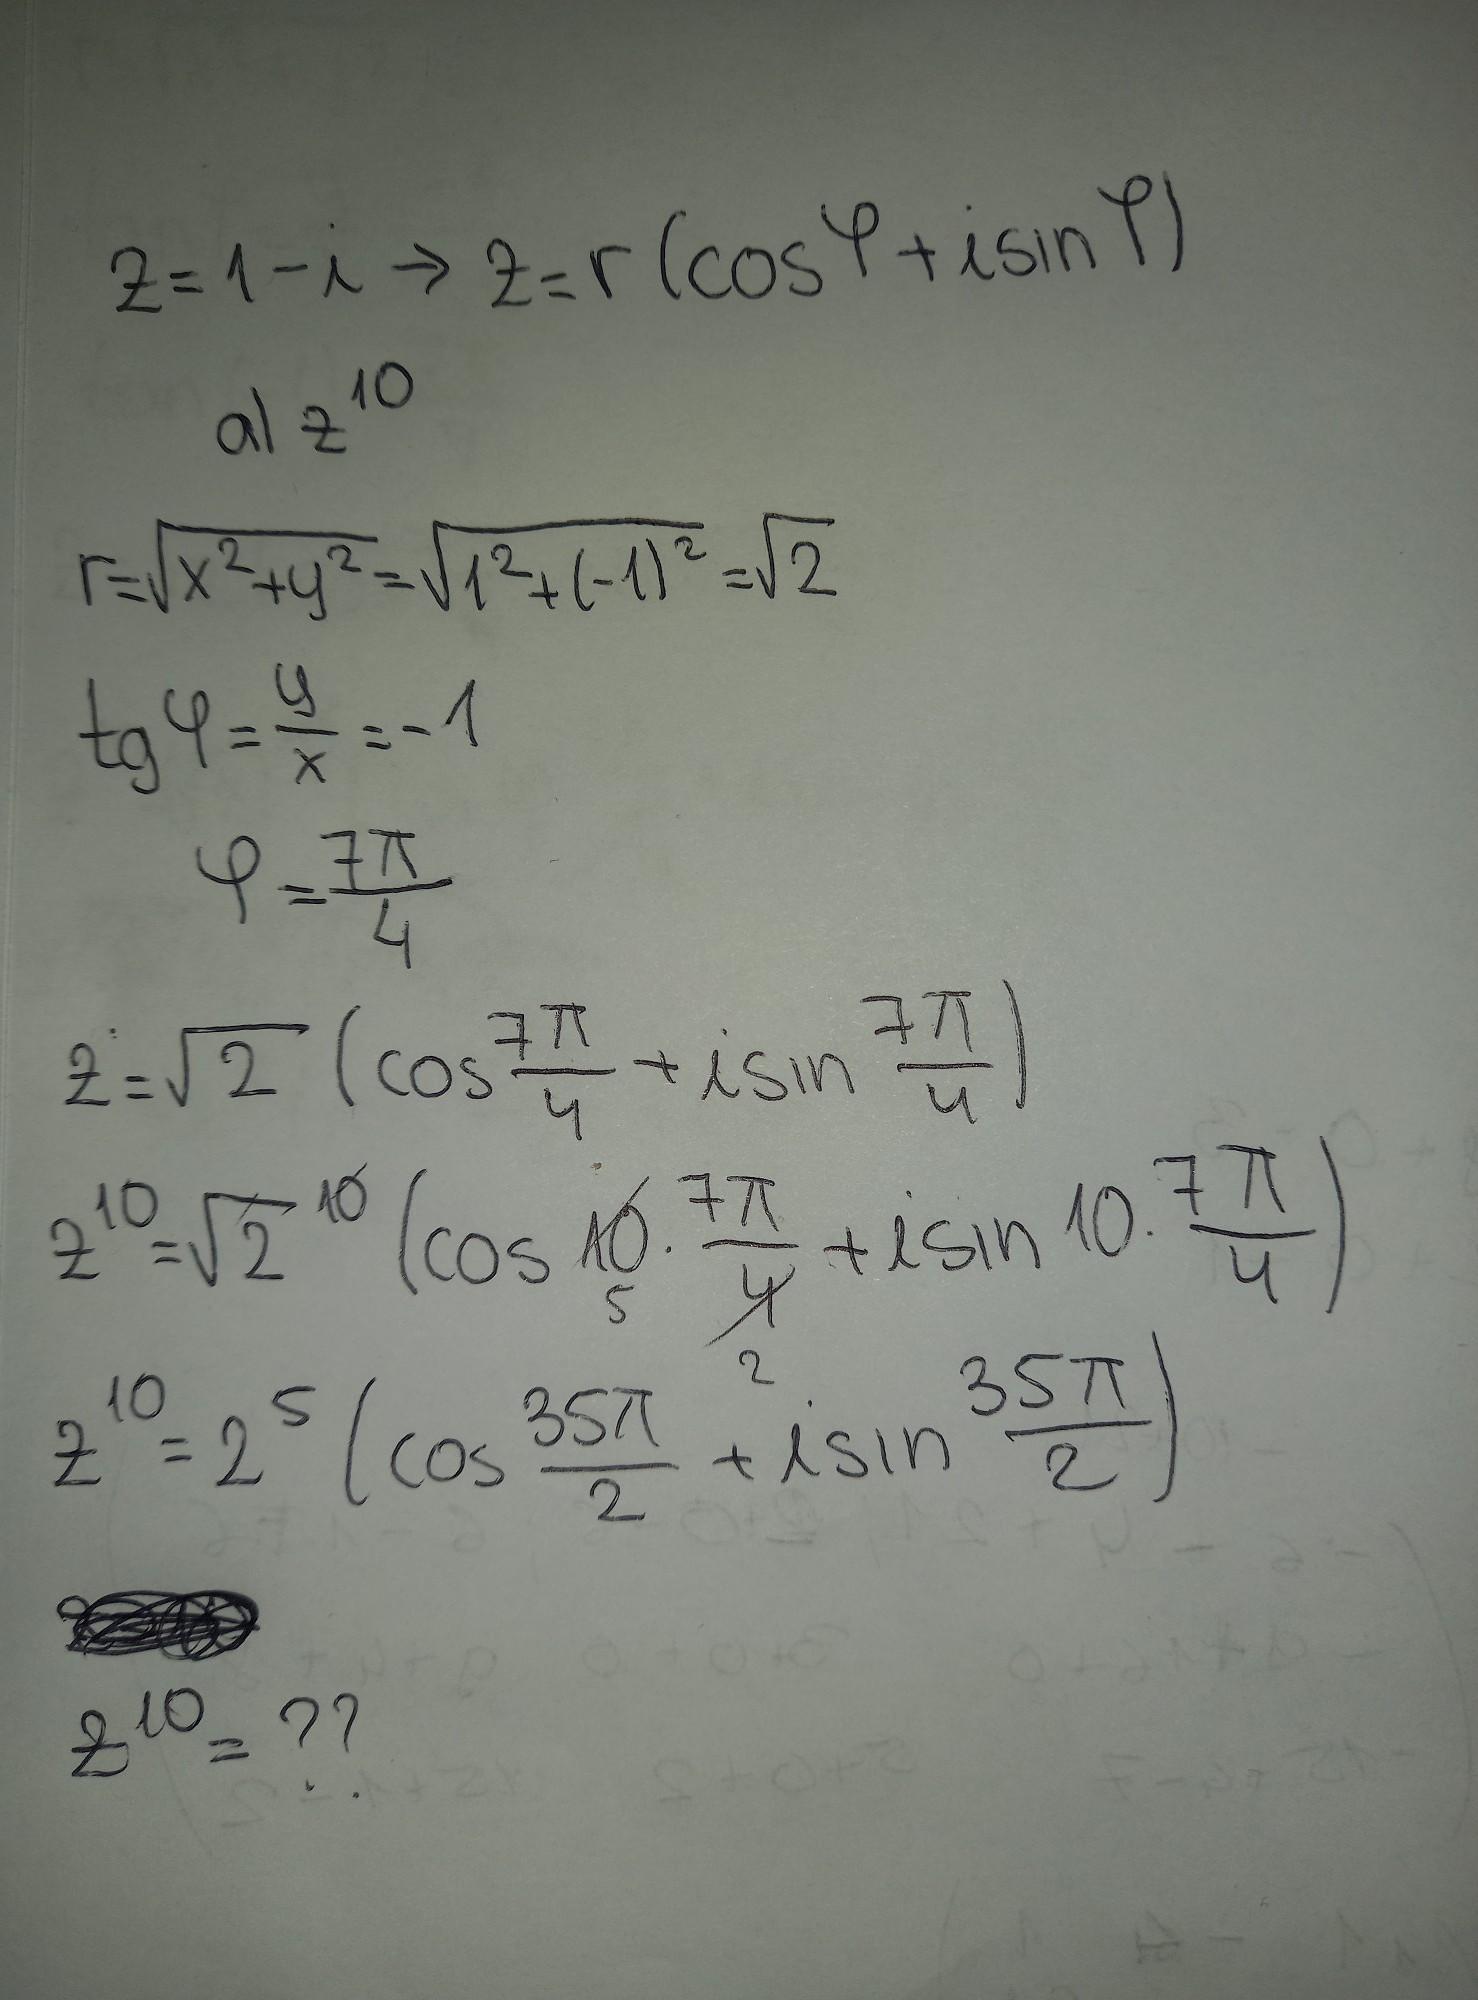 z = 1 - i → z = r (cos φ + i sin φ)
a) z^10
r = √(x² + y²) = √(1² + (-1)²) = √2
tg φ = y/x = -1
φ = 7π/4
z = √2 (cos 7π/4 + i sin 7π/4)
z^10 = √2^10 (cos 10 · 7π/4 + i sin 10 · 7π/4)
5 2
z^10 = 2^5 (cos 35π/2 + i sin 35π/2)
z^10 = ??